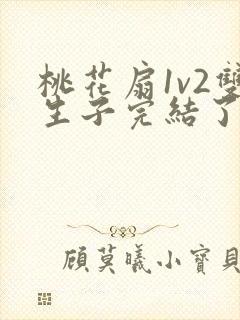 桃花扇1v2雙
生子完結了
顾莫曦小寶貝